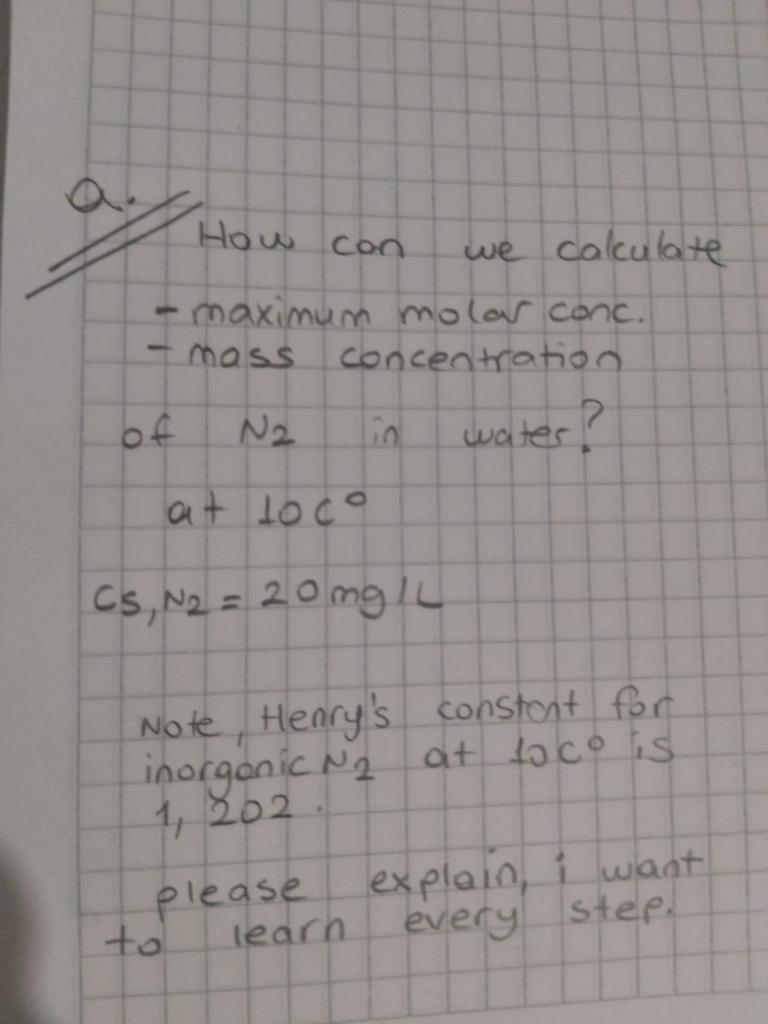 a.
How can we calculate
- maximum molar conc.
- mass concentration
of N2 in water?
at 10 c°
Cs,N2 = 20 mg/L
Note, Henry's constant for
inorganic N2 at 10 c° is
1,202.
please explain, i want
to learn every step.